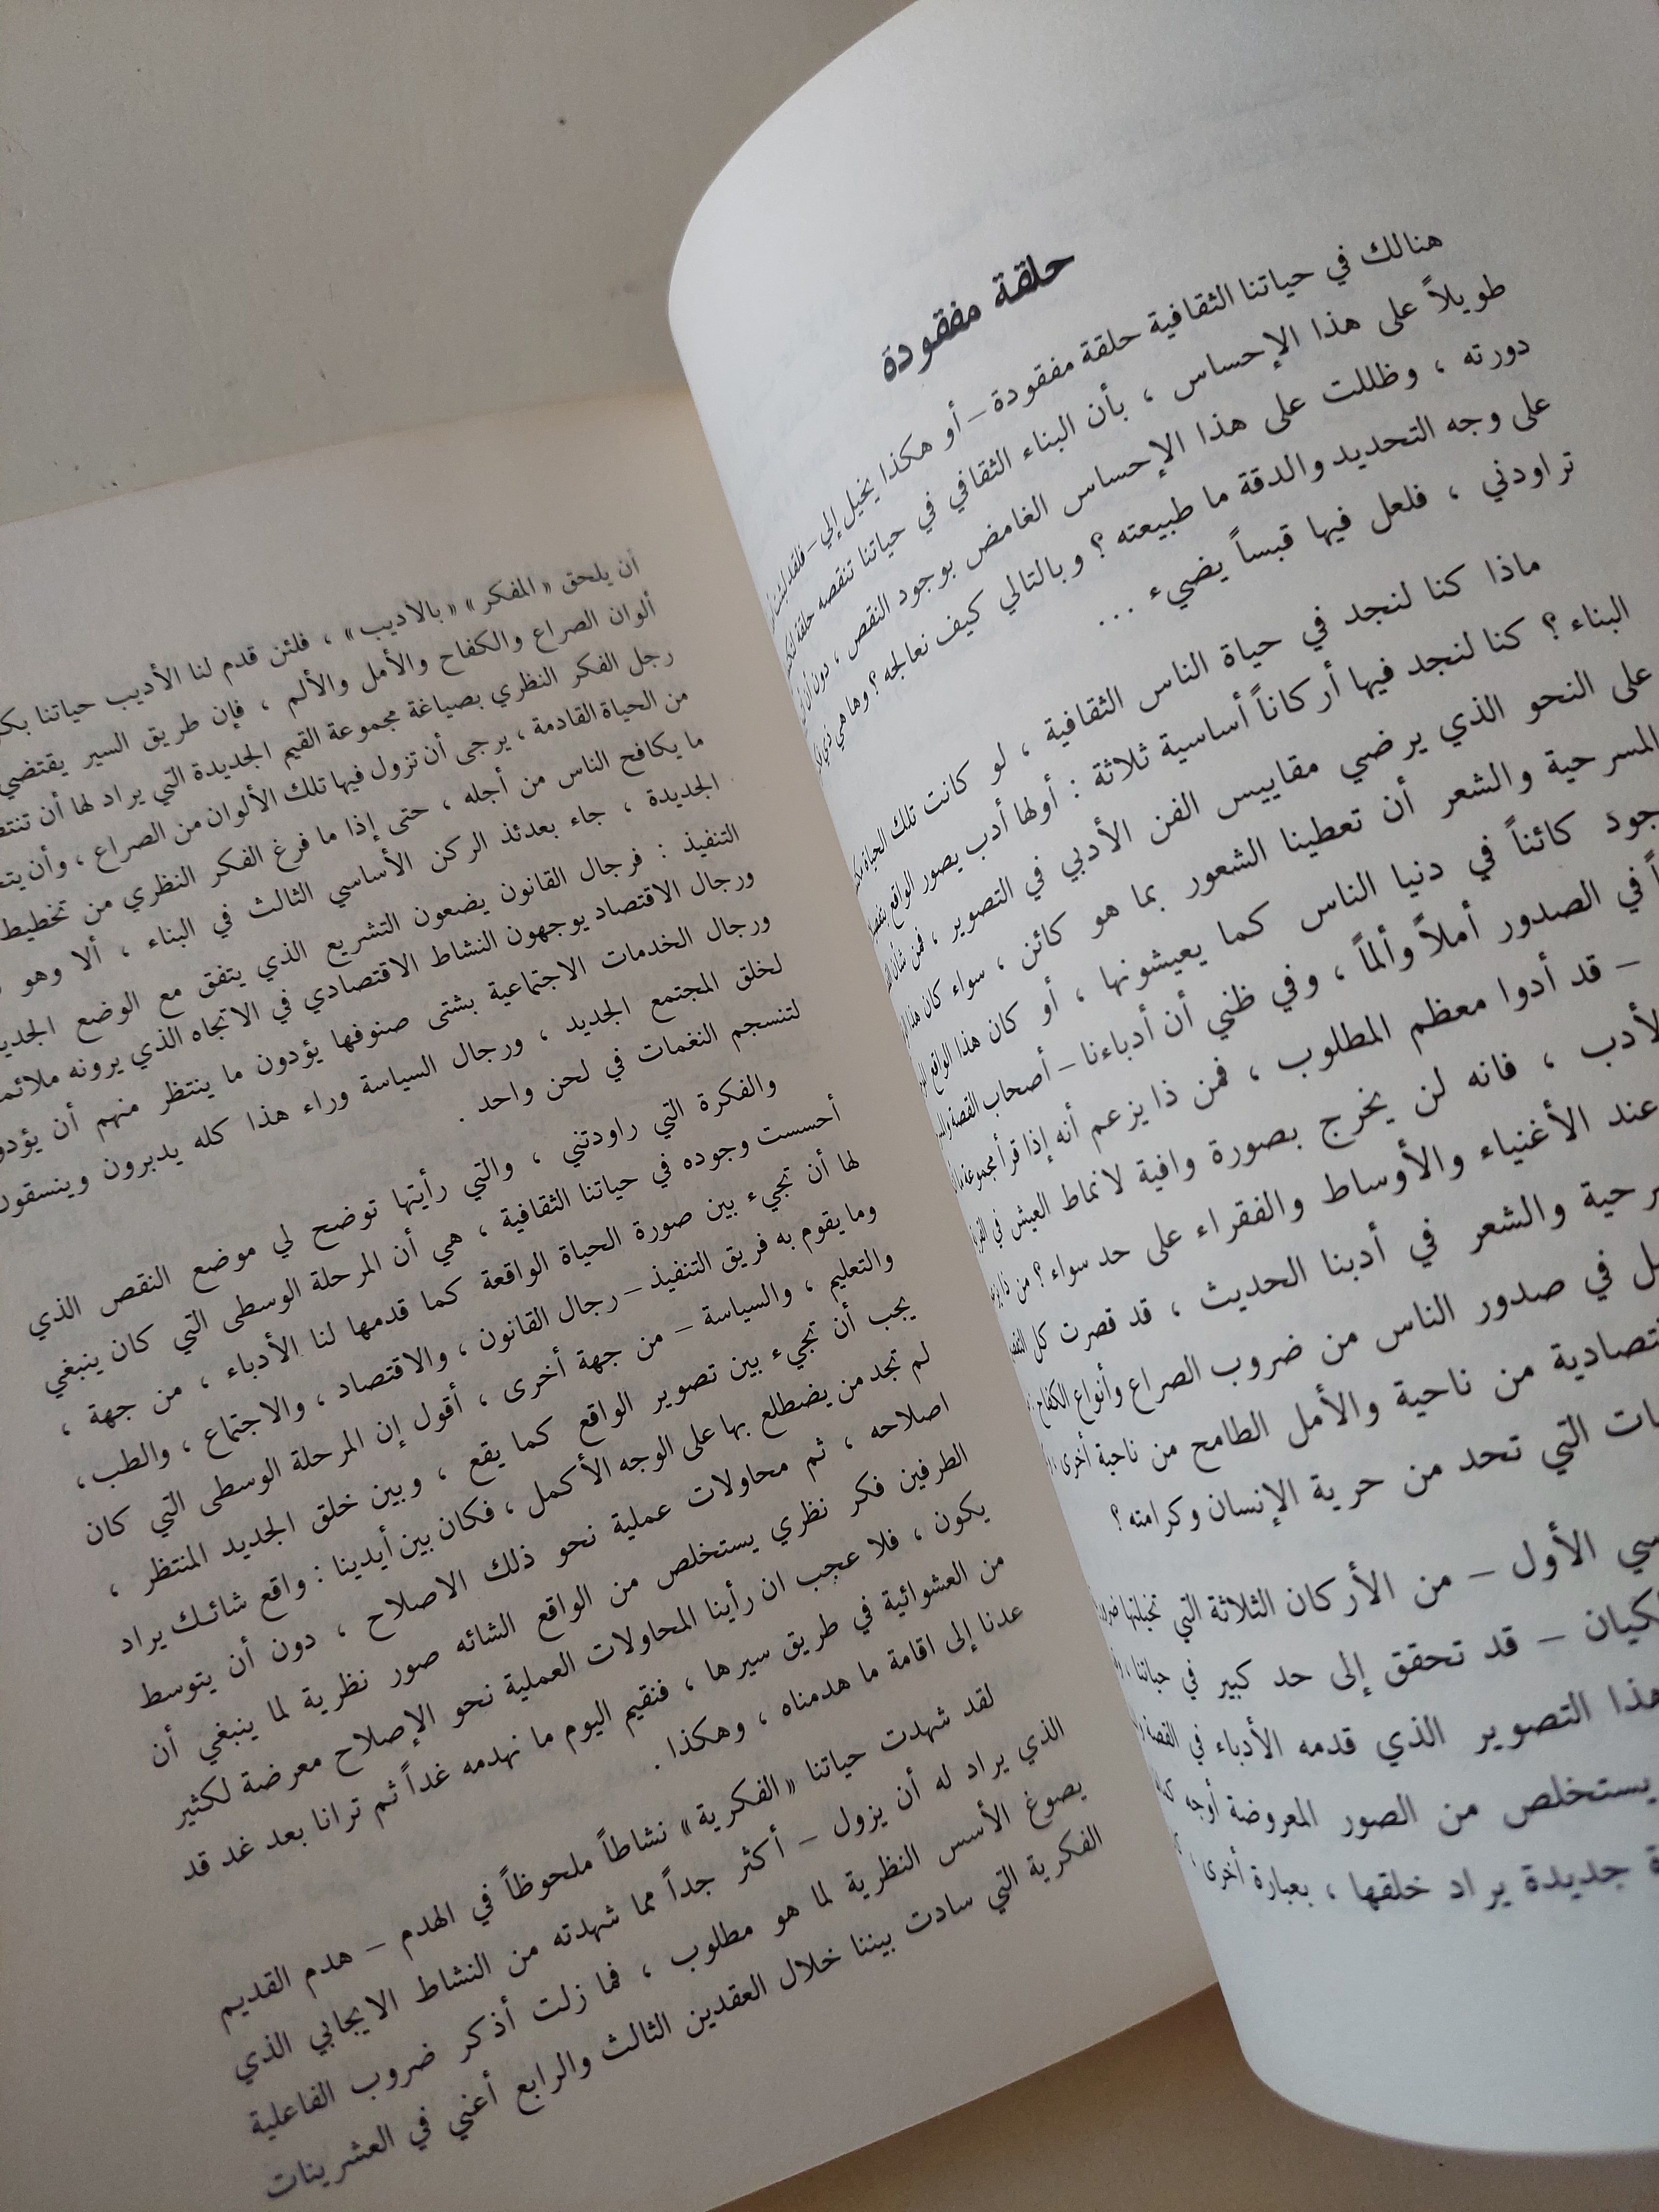 حلقة مفقودة
هنالك في حياتنا الثقافية حلقة مفقودة – أو هكذا يخيل إلي – فلقد لبثت
طويلاً على هذا الإحساس ، بأن البناء الثقافي في حياتنا تنقصه حلقة
دورته ، وظللت على هذا الإحساس الغامض بوجود النقص ، دون أن
على وجه التحديد والدقة ما طبيعته ؟ وبالتالي كيف نعالجه ؟ وها هي ذي
تراودني ، فلعل فيها قبساً يضيء ...
ماذا كنا لنجد في حياة الناس الثقافية ، لو كانت تلك الحياة
البناء ؟ كنا لنجد فيها أركاناً أساسية ثلاثة : أولها أدب يصور الواقع
على النحو الذي يرضي مقاييس الفن الأدبي في التصوير ، فمن شأن
المسرحية والشعر أن تعطينا الشعور بما هو كائن ، سواء كان هذا
كائناً في دنيا الناس كما يعيشونها ، أو كان هذا الواقع
في الصدور أملاً وألماً ، وفي ظني أن أدباءنا – أصحاب القصة
– قد أدوا معظم المطلوب ، فمن ذا يزعم أنه إذا قرأ مجموعة
، فانه لن يخرج بصورة وافية لانماط العيش في
عند الأغنياء والأوساط والفقراء على حد سواء ؟ من ذا
والشعر في أدبنا الحديث ، قد قصرت كل
في صدور الناس من ضروب الصراع وأنواع الكفاح
من ناحية والأمل الطامح من ناحية أخرى
التي تحد من حرية الإنسان وكرامته ؟
الأول – من الأركان الثلاثة التي تخيلتها
– قد تحقق إلى حد كبير في حياتنا ،
هذا التصوير الذي قدمه الأدباء في القصة
يستخلص من الصور المعروضة أوجه
جديدة يراد خلقها ، بعبارة أخرى ،
أن يلحق « المفكر » « بالأديب » ، فلئن قدم لنا الأديب حياتنا
ألوان الصراع والكفاح والأمل والألم ، فإن طريق السير يقتضي
رجل الفكر النظري بصياغة مجموعة القيم الجديدة التي يراد لها أن
من الحياة القادمة ، يرجى أن تزول فيها تلك الألوان من الصراع ، وأن
ما يكافح الناس من أجله ، حتى إذا ما فرغ الفكر النظري من تخطيط
الجديدة ، جاء بعدئذ الركن الأساسي الثالث في البناء ، ألا وهو
التنفيذ : فرجال القانون يضعون التشريع الذي يتفق مع الوضع
ورجال الاقتصاد يوجهون النشاط الاقتصادي في الاتجاه الذي يرونه
ورجال الخدمات الاجتماعية بشتى صنوفها يؤدون ما ينتظر منهم أن
لخلق المجتمع الجديد ، ورجال السياسة وراء هذا كله يدبرون وينسقون
لتنسجم النغمات في لحن واحد .
والفكرة التي راودتني ، والتي رأيتها توضح لي موضع النقص الذي
أحسست وجوده في حياتنا الثقافية ، هي أن المرحلة الوسطى التي كان ينبغي
لها أن تجيء بين صورة الحياة الواقعة كما قدمها لنا الأدباء ، من جهة ،
وما يقوم به فريق التنفيذ – رجال القانون ، والاقتصاد ، والاجتماع ، والطب ،
والتعليم ، والسياسة – من جهة أخرى ، أقول إن المرحلة الوسطى التي كان
يجب أن تجيء بين تصوير الواقع كما يقع ، وبين خلق الجديد المنتظر ،
لم تجد من يضطلع بها على الوجه الأكمل ، فكان بين أيدينا : واقع شائك يراد
اصلاحه ، ثم محاولات عملية نحو ذلك الاصلاح ، دون أن يتوسط
الطرفين فكر نظري يستخلص من الواقع الشائه صور نظرية لما ينبغي أن
يكون ، فلا عجب ان رأينا المحاولات العملية نحو الإصلاح معرضة لكثير
من العشوائية في طريق سيرها ، فنقيم اليوم ما نهدمه غداً ثم ترانا بعد غد قد
عدنا إلى اقامة ما هدمناه ، وهكذا .
لقد شهدت حياتنا « الفكرية » نشاطاً ملحوظاً في الهدم – هدم القديم
الذي يراد له أن يزول – أكثر جداً مما شهدته من النشاط الايجابي الذي
يصوغ الأسس النظرية لما هو مطلوب ، فما زلت أذكر ضروب الفاعلية
الفكرية التي سادت بيننا خلال العقدين الثالث والرابع أعني في العشرينات